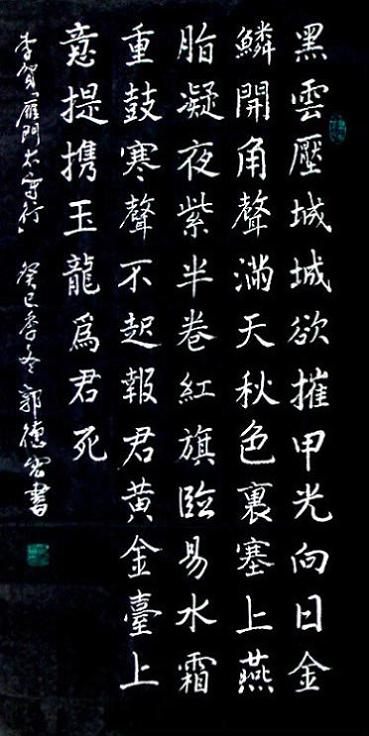 黑雲壓城城欲摧甲光向日金
鱗開角聲滿天秋色裏塞上燕
脂凝夜紫半卷紅旗臨易水霜
重鼓寒聲不起報君黃金臺上
意提携玉龍爲君死
李賀「雁門太守行」 癸巳季冬 郭德書